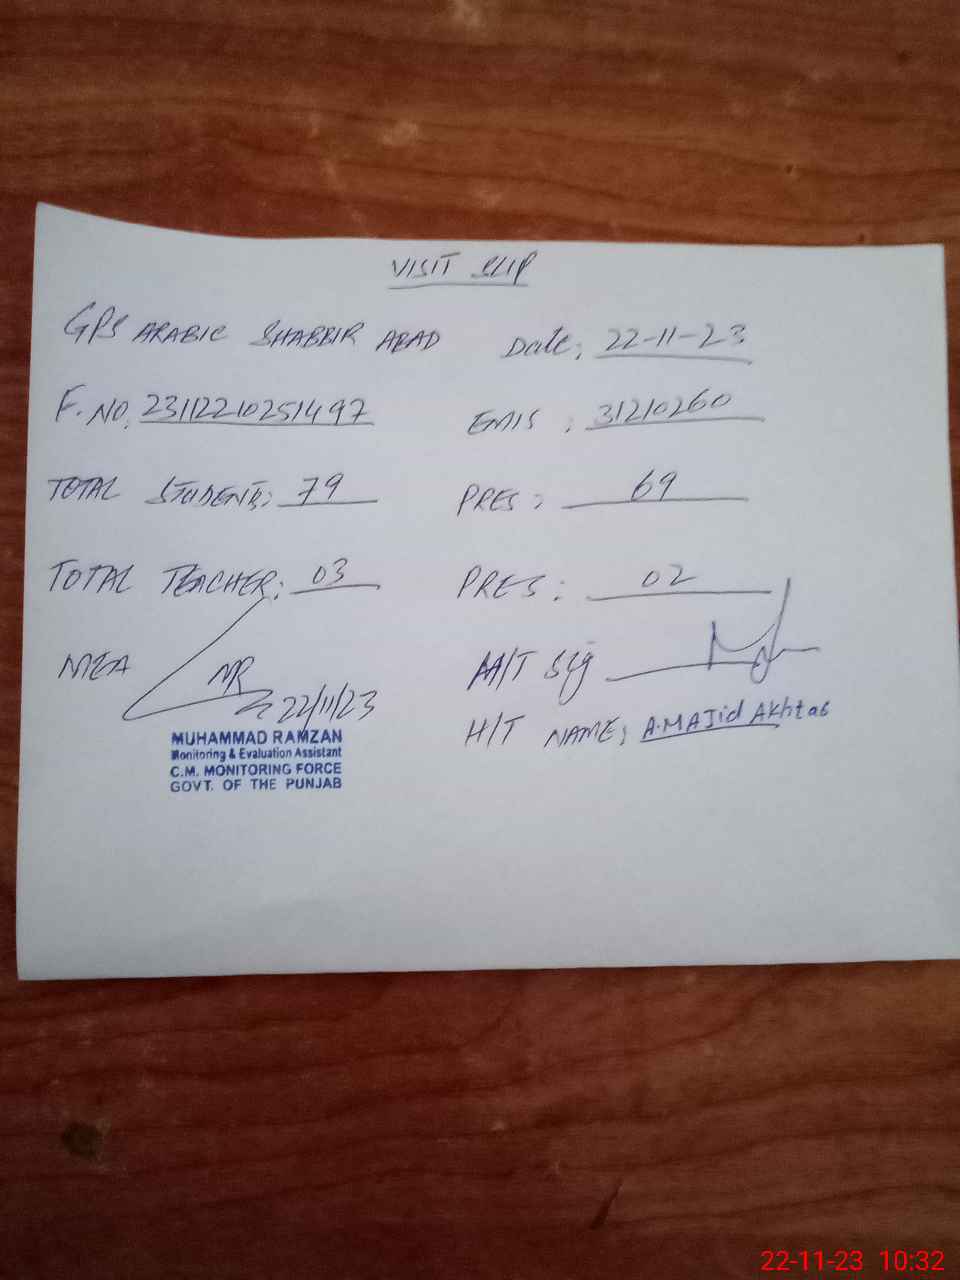 VISIT SLIP
GPS ARABIC SHABBIR ABAD Date: 22-11-23
F. NO. 23112210251497 EMIS : 31210260
TOTAL STUDENTS: 79 PRES : 69
TOTAL TEACHER: 03 PRES : 02
MEA MR 22/11/23 H/T Sig
H/T NAME: A.MAJid AKhtar
MUHAMMAD RAMZAN
Monitoring & Evaluation Assistant
C.M. MONITORING FORCE
GOVT. OF THE PUNJAB
22-11-23 10:32